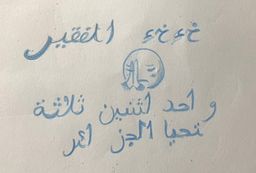 الفقير
و احد اثنين ثلاثة
تحيا الجز ائر